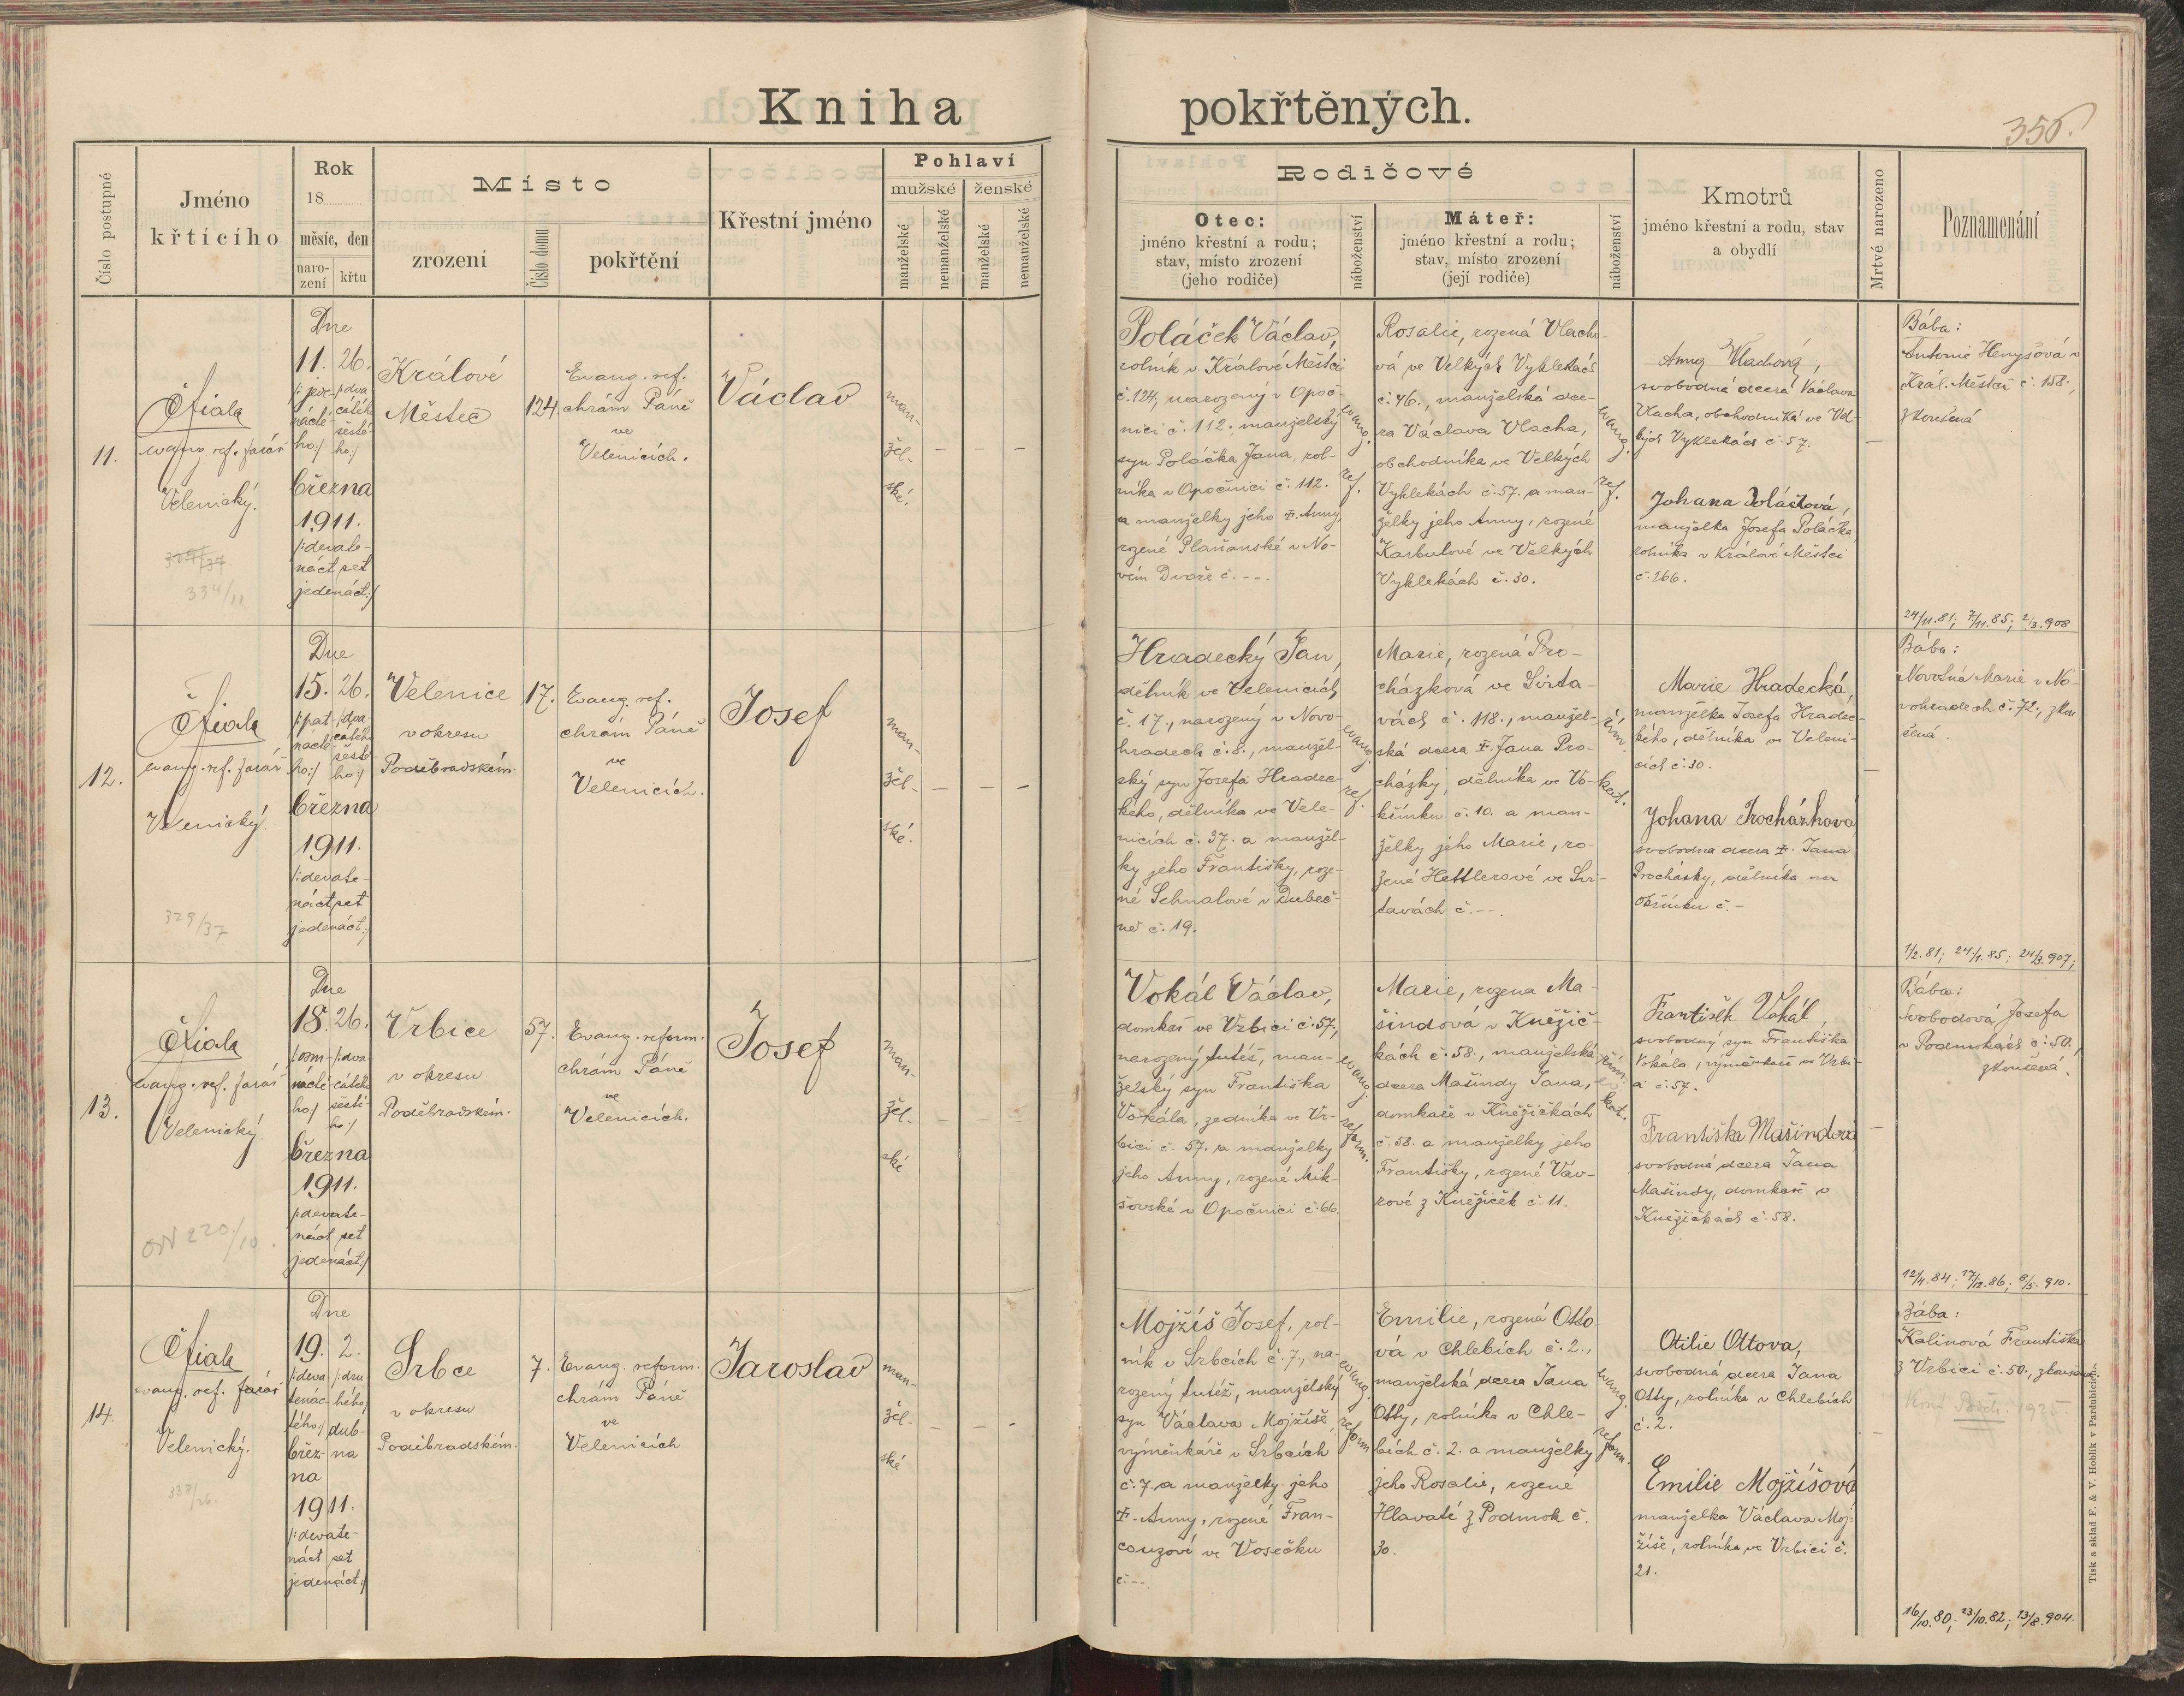 Kniha pokřtěných.
356.
Číslo postupné
Jméno
křtícího
Rok
18
měsíc, den
naro-
zení
křtu
Místo
zrození
Číslo domu
pokřtění
Křestní jméno
Pohlaví
mužské
ženské
manželské
nemanželské
manželské
nemanželské
Rodičové
Otec:
jméno křestní a rodu;
stav, místo zrození
(jeho rodiče)
náboženství
Máteř:
jméno křestní a rodu;
stav, místo zrození
(její rodiče)
náboženství
Kmotrů
jméno křestní a rodu, stav
a obydlí
Mrtvé narozeno
Poznamenání
11.
evang. ref. farář
Velenický.
334/11
Dne
11. 26.
/: jede- /: dva-
nácté- cátého
ho:/ šesté-
ho:/
března
1911.
/: devate-
náct set
jedenáct:/
Králové
Městec
124.
Evang. ref.
chrám Páně
ve
Velenicích.
Václav
man-
žel-
ské.
– – –
Poláček Václav,
rolník v Králové Městci
č. 124, narozený v Opoč-
nici č. 112., manželský
syn Poláčka Jana, rol-
níka v Opočnici č. 112.
a manželky jeho †. Anny,
rozené Plaňanské v No-
vém Dvoře č. --.
evang.
ref.
Rosalie, rozená Vlacho-
vá ve Velkých Vyklekách
č. 46., manželská dce-
ra Václava Vlacha,
obchodníka ve Velkých
Vyklekách č. 57. a man-
želky jeho Anny, rozené
Karbulové ve Velkých
Vyklekách č. 30.
evang.
ref.
Anna Vlachová,
svobodná dcera Václava
Vlacha, obchodníka ve Vel-
kých Vyklekách č. 57.
Johana Poláčková,
manželka Josefa Poláčka
rolníka v Králové Městci
č. 166.
–
Bába:
Antonie Henyšová v
Král. Městci č. 158.,
zkoušená
24/11. 81; 7/11. 85; 2/3. 908
12.
evang. ref. farář
Velenický.
329/37
Dne
15. 26.
/: pat- /: dva-
nácté- cátého
ho:/ šesté-
ho:/
března
1911.
/: devate-
náct set
jedenáct:/
Velenice
v okresu
Poděbradském
17.
Evang. ref.
chrám Páně
ve
Velenicích.
Josef
man-
žel-
ské.
– – –
Hradecký Jan,
dělník ve Velenicích
č. 17., narozený v Novo-
hradech č. 8., manžel-
ský syn Josefa Hradec-
kého, dělníka ve Vele-
nicích č. 37. a manžel-
ky jeho Františky, roze-
né Sehnalové v Dubeč-
né č. 19.
evang.
ref.
Marie, rozená Pro-
cházková ve Svita-
vách č. 118., manžel-
ská dcera †. Jana Pro-
cházky, dělníka ve Vo-
křínku č. 10. a man-
želky jeho Marie, ro-
zené Hettlerové ve Svi-
tavách č. --.
řím.
kat.
Marie Hradecká,
manželka Josefa Hradec-
kého, dělníka ve Veleni-
cích č. 30.
Johana Procházková
svobodná dcera †. Jana
Procházky, dělníka na
Okřínku č. –
–
Bába:
Novotná Marie v No-
vohradech č. 72., zkou-
šená.
1/2. 81; 24/1. 85; 24/3. 907;
13.
evang. ref. farář
Velenický.
220/10.
Dne
18. 26.
/: osm- /: dva-
nácté- cátého
ho:/ šesté-
ho:/
března
1911.
/: devate-
náct set
jedenáct:/
Vrbice
v okresu
Poděbradském.
57.
Evang. reform.
chrám Páně
ve
Velenicích.
Josef
man-
žel-
ské
– – –
Vokál Václav,
domkař ve Vrbici č. 57.,
narozený tutéž, man-
želský syn Františka
Vokála, zedníka ve Vr-
bici č. 57. a manželky
jeho Anny, rozené Mik-
šovské v Opočnici č. 66.
evang.
reform.
Marie, rozená Ma-
šindová v Kněžič-
kách č. 58., manželská
dcera Mašindy Jana,
domkaře v Kněžičkách
č. 58. a manželky jeho
Františky, rozené Vav-
rové z Kněžiček č. 11.
řím.
kat.
František Vokál,
svobodný syn Františka
Vokála, výměnkaře ve Vrbi-
ci č. 57.
Františka Mašindová
svobodná dcera Jana
Mašindy, domkaře v
Kněžičkách č. 58.
–
Bába:
Svobodová Josefa
v Podmokách č. 50.,
zkoušená.
12/4. 84; 17/12. 86; 8/5. 910.
14.
evang. ref. farář
Velenický.
Dne
19. 2.
/: deva- /: dru-
tenác- hého:/
tého:/ dub-
břez- na
na
1911.
/: devate-
náct set
jedenáct:/
Srbce
v okresu
Poděbradském.
7.
Evang. reform.
chrám Páně
ve
Velenicích
Jaroslav
man-
žel-
ské
– – –
Mojžíš Josef, rol-
ník v Srbcích č. 7., na-
rozený tutéž, manželský
syn Václava Mojžíše,
výměnkáře v Srbcích
č. 7. a manželky jeho
†. Anny, rozené Fran-
couzové ve Vosečku
č. --.
evang.
reform
Emilie, rozená Otto-
vá v Chlebích č. 2.,
manželská dcera Jana
Otty, rolníka v Chle-
bích č. 2. a manželky
jeho Rosalie, rozené
Hlavaté z Podmok č.
30.
evang.
reform.
Otilie Ottova,
svobodná dcera Jana
Otty, rolníka v Chlebích
č. 2.
Emilie Mojžíšová
manželka Václava Moj-
žíše, rolníka ve Vrbici č.
21.
–
Bába:
Kalinová Františka
z Vrbici č. 50., zkoušená.
1925.
16/10. 80; 23/10. 82; 13/8. 904.
Tisk a sklad F. & V. Hoblík v Pardubicích.